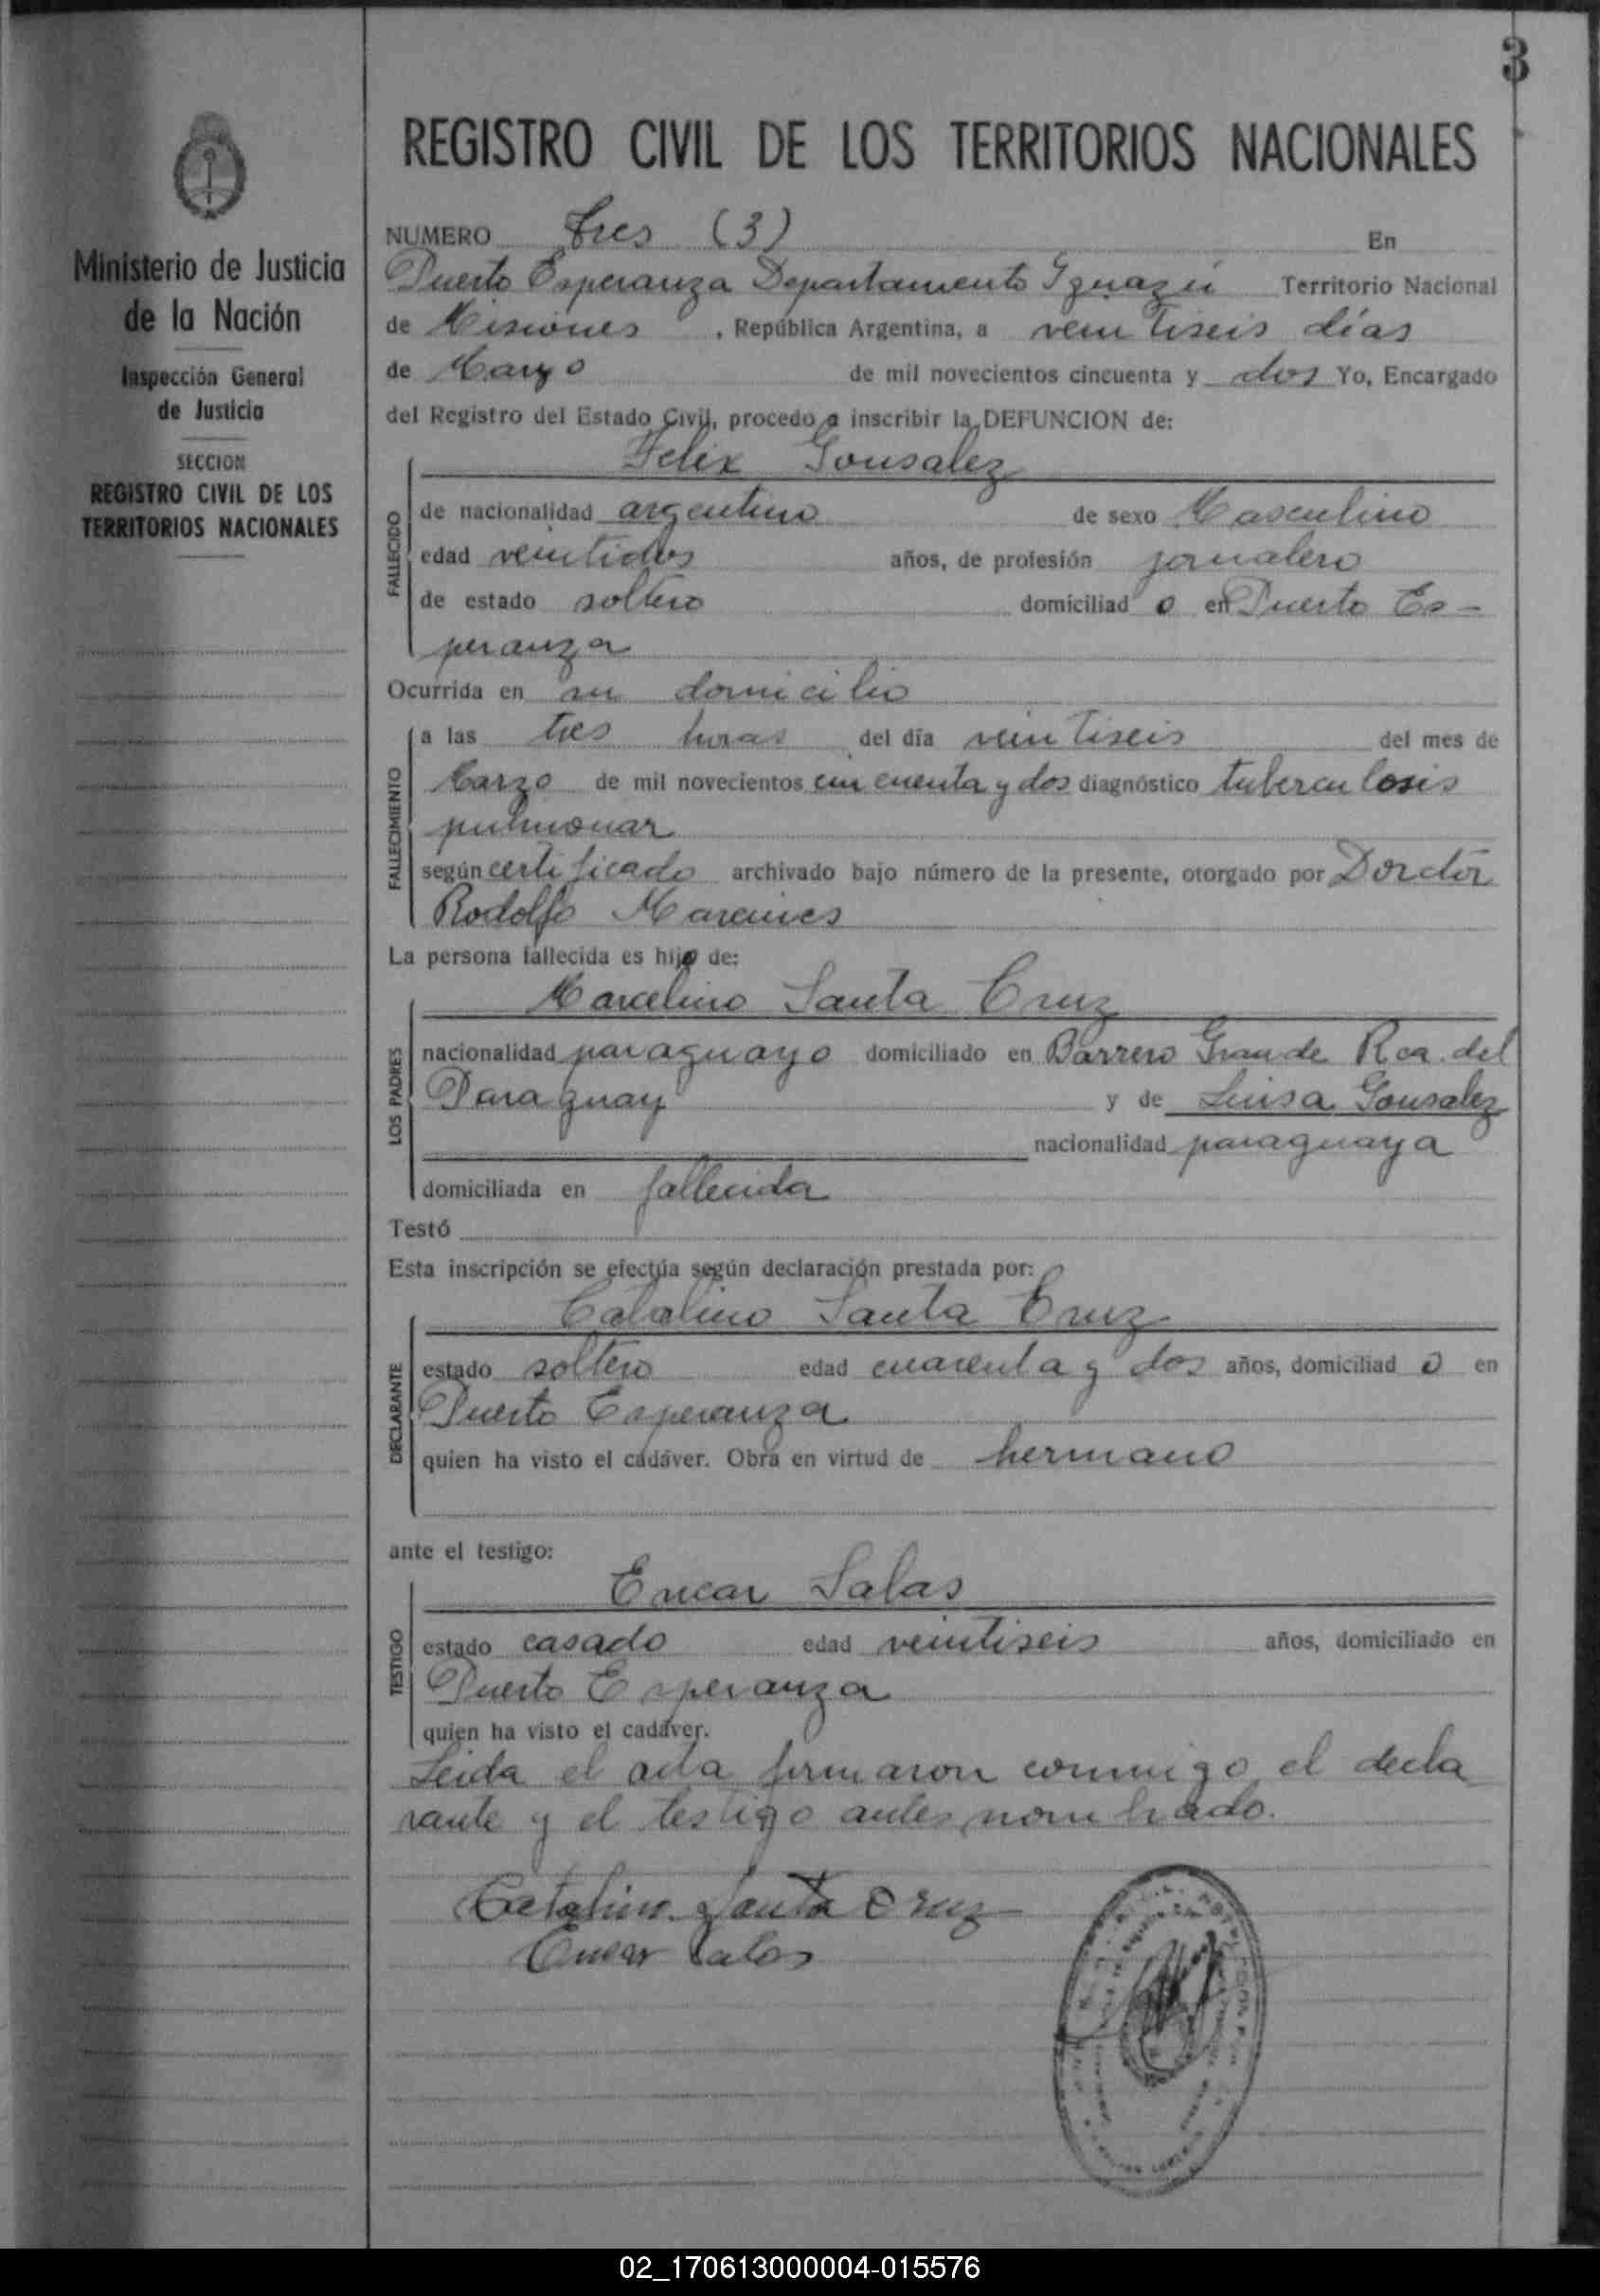 3
REGISTRO CIVIL DE LOS TERRITORIOS NACIONALES
Ministerio de Justicia
de la Nación
Inspección General
de Justicia
SECCION
REGISTRO CIVIL DE LOS
TERRITORIOS NACIONALES
NUMERO tres (3) En
Puerto Esperanza Departamento Iguazú Territorio Nacional
de Misiones, República Argentina, a veintiseis días
de Marzo de mil novecientos cincuenta y dos Yo, Encargado
del Registro del Estado Civil, procedo a inscribir la DEFUNCION de:
Felix Gonsalez
FALLECIDO
de nacionalidad argentino de sexo Masculino
edad veintidos años, de profesión jornalero
de estado soltero domiciliado en Puerto Es-
peranza
Ocurrida en su domicilio
FALLECIMIENTO
a las tres horas del día veintiseis del mes de
Marzo de mil novecientos cincuenta y dos diagnóstico tuberculosis
pulmonar
según certificado archivado bajo número de la presente, otorgado por Dorctor
Rodolfo
La persona fallecida es hijo de:
Marcelino Santa Cruz
LOS PADRES
nacionalidad paraguayo domiciliado en Barrero Grande Rca. del
Paraguay y de Luisa Gonsalez
nacionalidad paraguaya
domiciliada en fallecida
Testó
Esta inscripción se efectúa según declaración prestada por:
Catalino Santa Cruz
DECLARANTE
estado soltero edad cuarenta y dos años, domiciliado en
Puerto Esperanza
quien ha visto el cadáver. Obra en virtud de hermano
ante el testigo:
Encar Salas
TESTIGO
estado casado edad veintiseis años, domiciliado en
Puerto Esperanza
quien ha visto el cadáver.
Leida el acta firmaron conmigo el decla
rante y el testigo antes nombrado.
Catalino Santa Cruz
Encar Salas
02_170613000004-015576